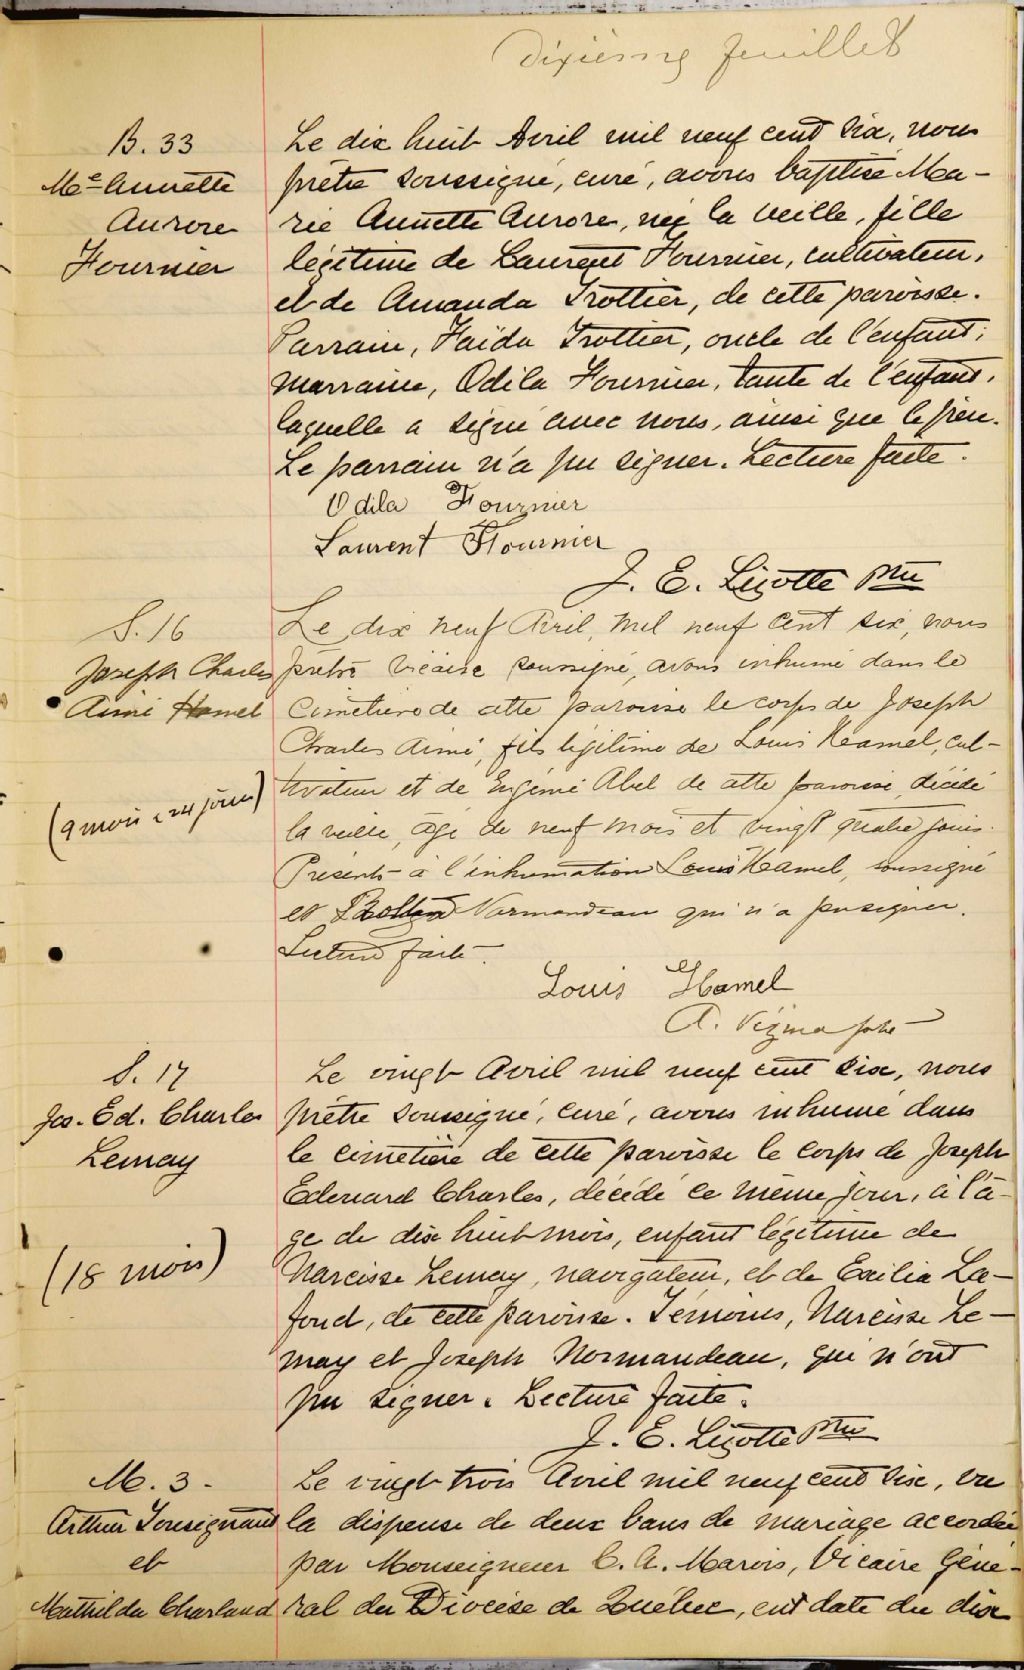 Dixième feuillet
B. 33
Me Annette
Aurore
Fournier
Le dix huit Avril mil neuf cent six, nous
prêtre soussigné, curé, avons baptisé Ma-
rie Annette Aurore, née la veille, fille
légitime de Laurent Fournier, cultivateur,
et de Amanda Trottier, de cette paroisse.
Parrain, Haïda Trottier, oncle de l'enfant;
marraine, Odila Fournier, tante de l'enfant,
laquelle a signé avec nous, ainsi que le père.
Le parrain n'a pu signer. Lecture faite.
Odila Fournier
Laurent Fournier
J. E. Lizotte Ptre
S. 16
Joseph Charles
Aimé Hamel
(9 mois & 24 jours)
Le dix neuf Avril, mil neuf cent six, nous
prêtre vicaire soussigné, avons inhumé dans le
cimetière de cette paroisse le corps de Joseph
Charles Aimé, fils légitime de Louis Hamel, cul-
tivateur et de Eugénie Abel de cette paroisse, décédé
la veille, âgé de neuf mois et vingt quatre jours.
Présents à l'inhumation Louis Hamel, soussigné
et Normandeau qui n'a pu signer.
Lecture faite.
Louis Hamel
A. Vézina ptre
S. 17
Jos. Ed. Charles
Lemay
(18 mois)
Le vingt Avril mil neuf cent six, nous
prêtre soussigné, curé, avons inhumé dans
le cimetière de cette paroisse le corps de Joseph
Edouard Charles, décédé ce même jour, à l'â-
ge de dix huit mois, enfant légitime de
Narcisse Lemay, navigateur, et de Exilia La-
fond, de cette paroisse. Témoins, Narcisse Le-
may et Joseph Normandeau, qui n'ont
pu signer. Lecture faite.
J. E. Lizotte Ptre
M. 3 -
Arthur Tousignant
et
Mathilda Charland
Le vingt trois Avril mil neuf cent six, vu
la dispense de deux bans de mariage accordée
par Monseigneur C. A. Marois, Vicaire Géné-
ral du Diocèse de Québec, ent date du dix